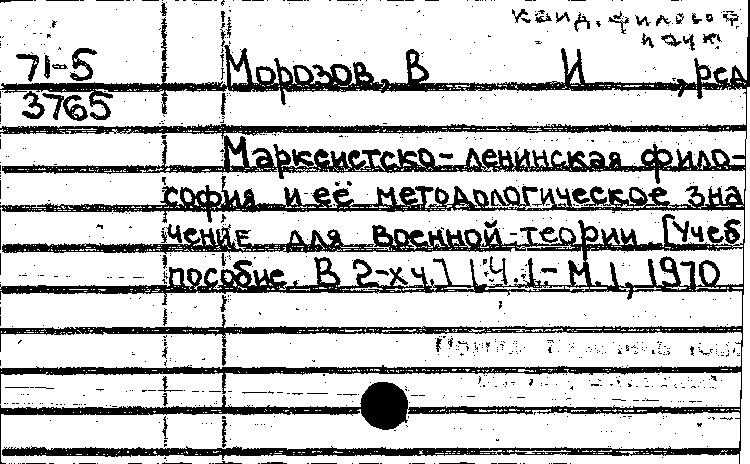 канд. философ
наук
71-5
3765
Морозов, В И , ред
Марксистско-ленинская фило-
софия и её методологическое зна
чение для военной теории [Учеб
пособие. В 2-х ч.] [Ч.1.- М.], 1970